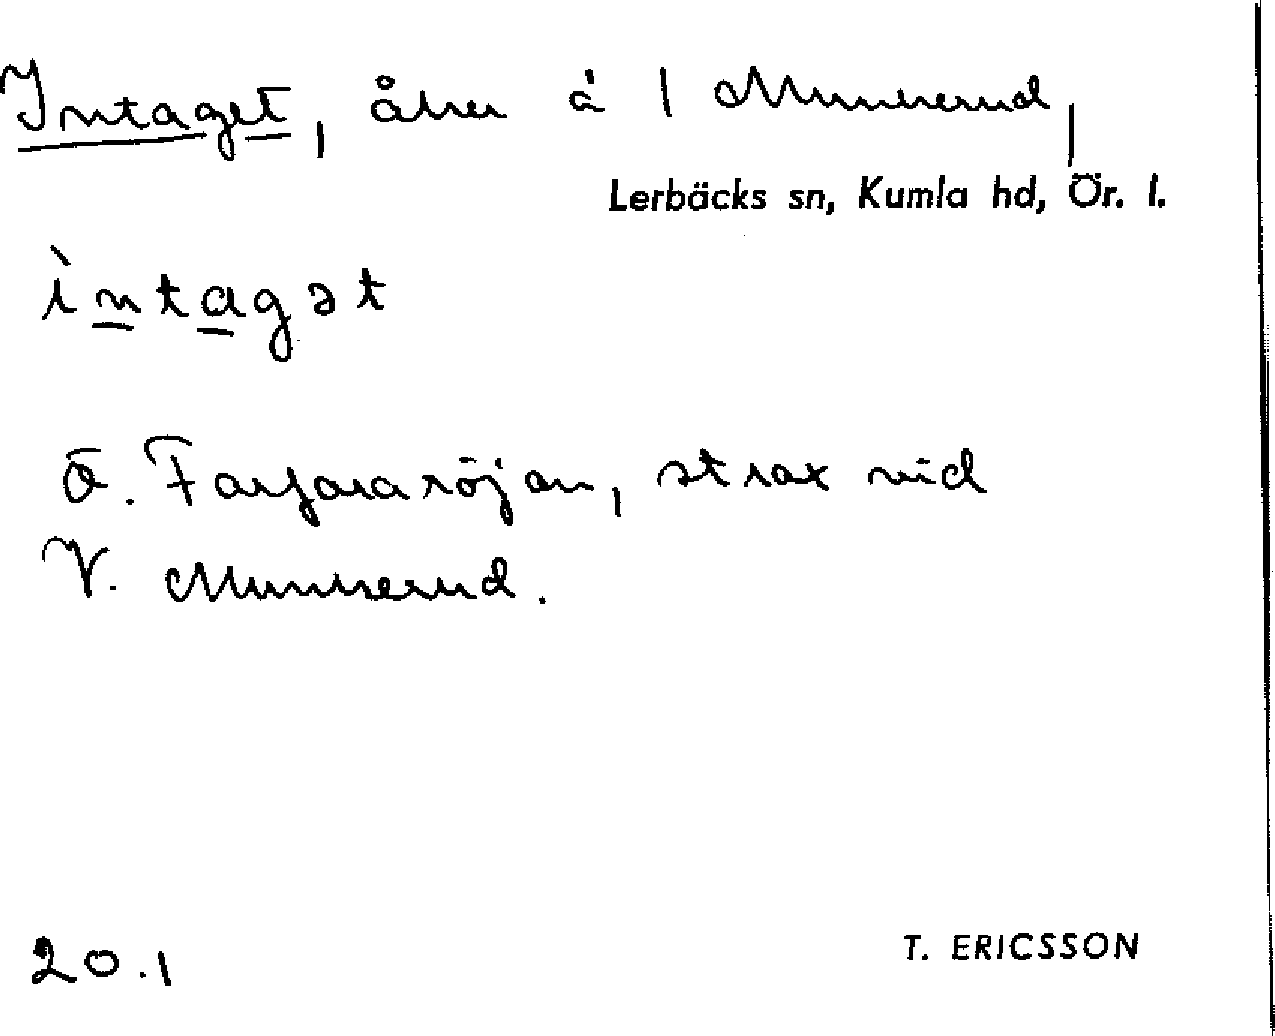 Intaget, åker å 1 Munkerud,
Lerbäcks sn, Kumla hd, Ör. l.
ìntagət
Ö. Farfararöjan, strax vid
V. Munkerud.
20.1
T. ERICSSON